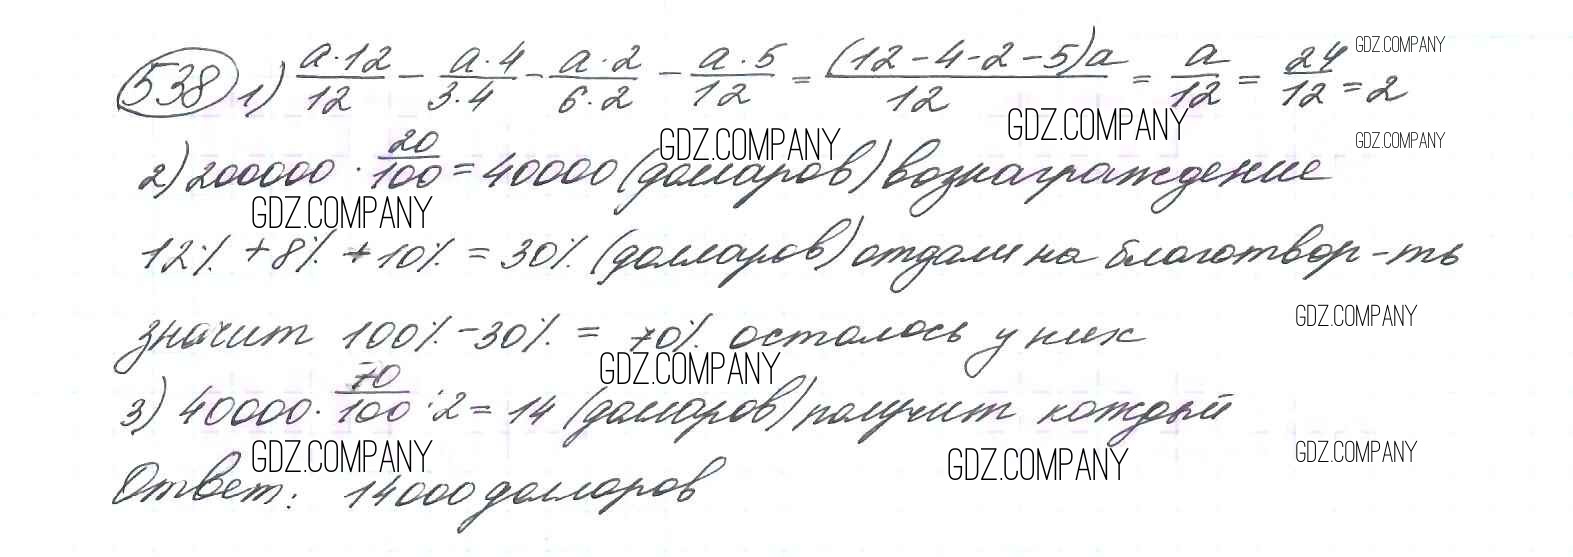 538 1) a·12/12 − a·4/3·4 − a·2/6·2 − a·5/12 = (12−4−2−5)a/12 = a/12 = 24/12 = 2
GDZ.COMPANY
GDZ.COMPANY GDZ.COMPANY GDZ.COMPANY
2) 200000 · 20/100 = 40000 (долларов) вознаграждение
GDZ.COMPANY
12% + 8% + 10% = 30% (долларов) отдали на благотвор-ть
GDZ.COMPANY
значит 100% − 30% = 70% осталось у них
GDZ.COMPANY
3) 40000 · 70/100 : 2 = 14 (долларов) получит каждый
GDZ.COMPANY GDZ.COMPANY GDZ.COMPANY
Ответ: 14000 долларов